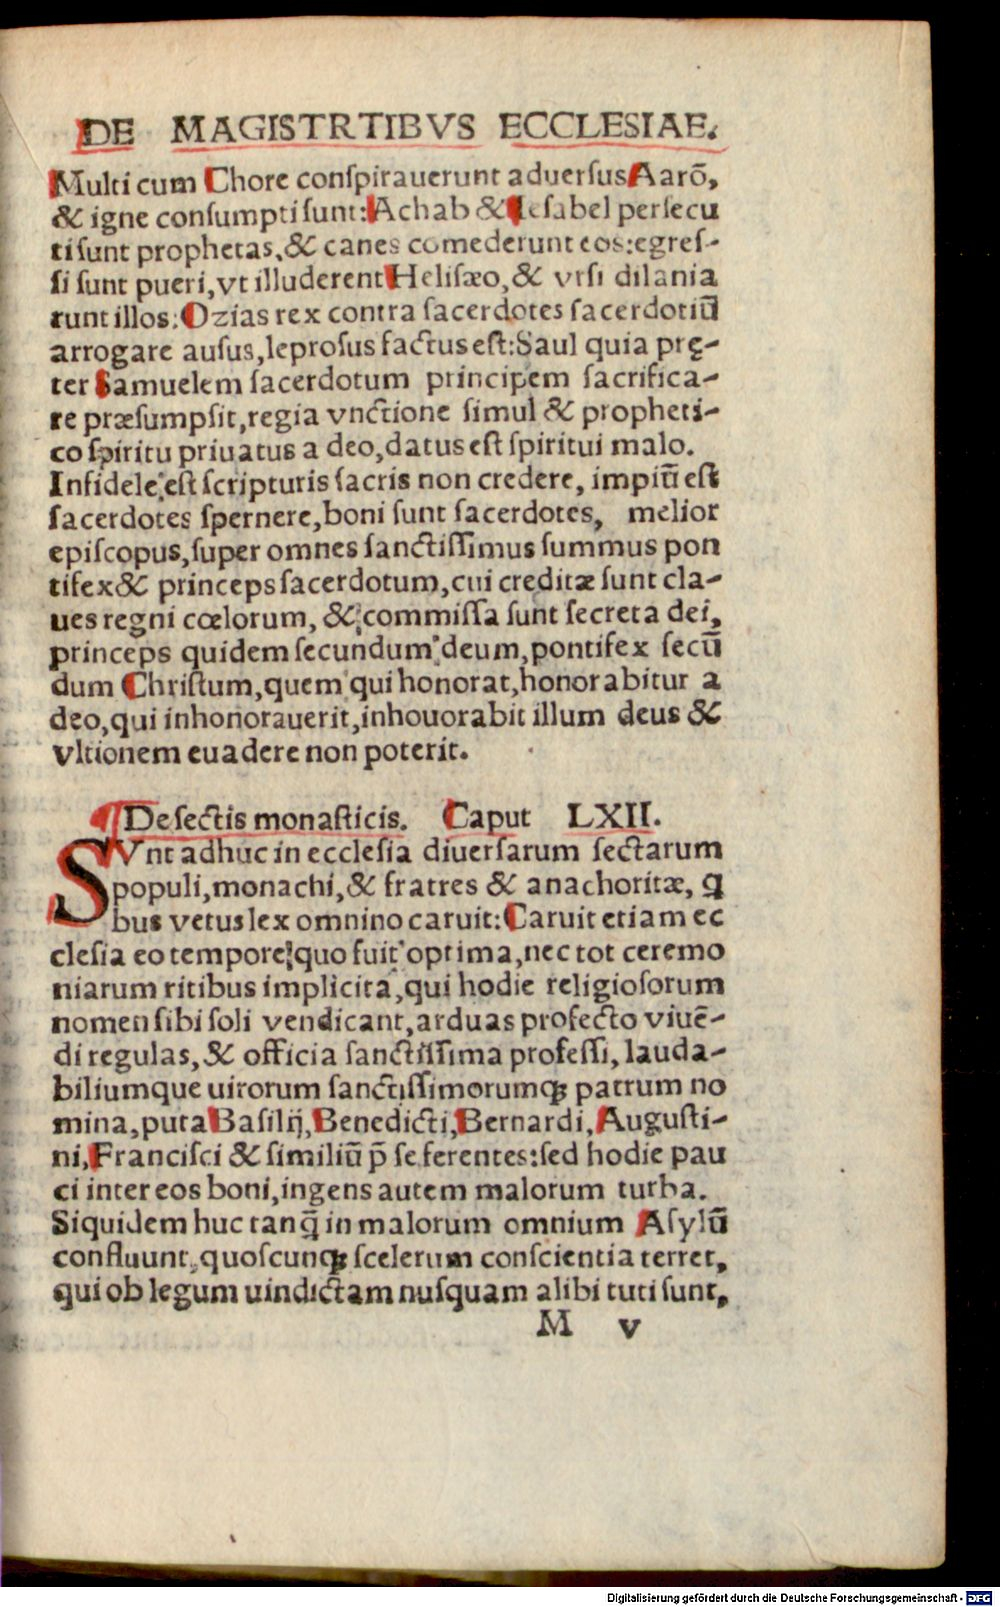 DE MAGISTRTIBVS ECCLESIAE.
Multi cum Chore conſpirauerunt aduerſus Aarō,
& igne conſumpti ſunt: Achab & Ieſabel perſecu
ti ſunt prophetas, & canes comederunt eos: egreſ-
ſi ſunt pueri, vt illuderent Heliſæo, & vrſi dilania
runt illos: Ozias rex contra ſacerdotes ſacerdotiū
arrogare auſus, leproſus factus eſt: Saul quia prę-
ter Samuelem ſacerdotum principem ſacrifica-
re præſumpſit, regia vnctione ſimul & propheti-
co ſpiritu priuatus a deo, datus eſt ſpiritui malo.
Infidele eſt ſcripturis ſacris non credere, impiū eſt
ſacerdotes ſpernere, boni ſunt ſacerdotes, melior
epiſcopus, ſuper omnes ſanctiſſimus ſummus pon
tifex & princeps ſacerdotum, cui creditæ ſunt cla-
ues regni cœlorum, & commiſſa ſunt ſecreta dei,
princeps quidem ſecundum deum, pontifex ſecū
dum Chriſtum, quem qui honorat, honorabitur a
deo, qui inhonorauerit, inhouorabit illum deus &
vltionem euadere non poterit.
¶ De ſectis monaſticis. Caput LXII.
SVnt adhuc in eccleſia diuerſarum ſectarum
populi, monachi, & fratres & anachoritæ, q̄
bus vetus lex omnino caruit: Caruit etiam ec
cleſia eo tempore, quo fuit optima, nec tot ceremo
niarum ritibus implicita, qui hodie religioſorum
nomen ſibi ſoli vendicant, arduas profecto viuē-
di regulas, & officia ſanctiſſima profeſſi, lauda-
biliumque uirorum ſanctiſſimorumqꝫ patrum no
mina, puta Baſilij, Benedicti, Bernardi, Auguſti-
ni, Franciſci & ſimiliū p̄ ſe ferentes: ſed hodie pau
ci inter eos boni, ingens autem malorum turba.
Siquidem huc tanq̄ in malorum omnium Aſylū
confluunt, quoſcunqꝫ ſcelerum conſcientia terret,
qui ob legum uindictam nuſquam alibi tuti ſunt,
M v
Digitalisierung gefördert durch die Deutsche Forschungsgemeinschaft - DFG